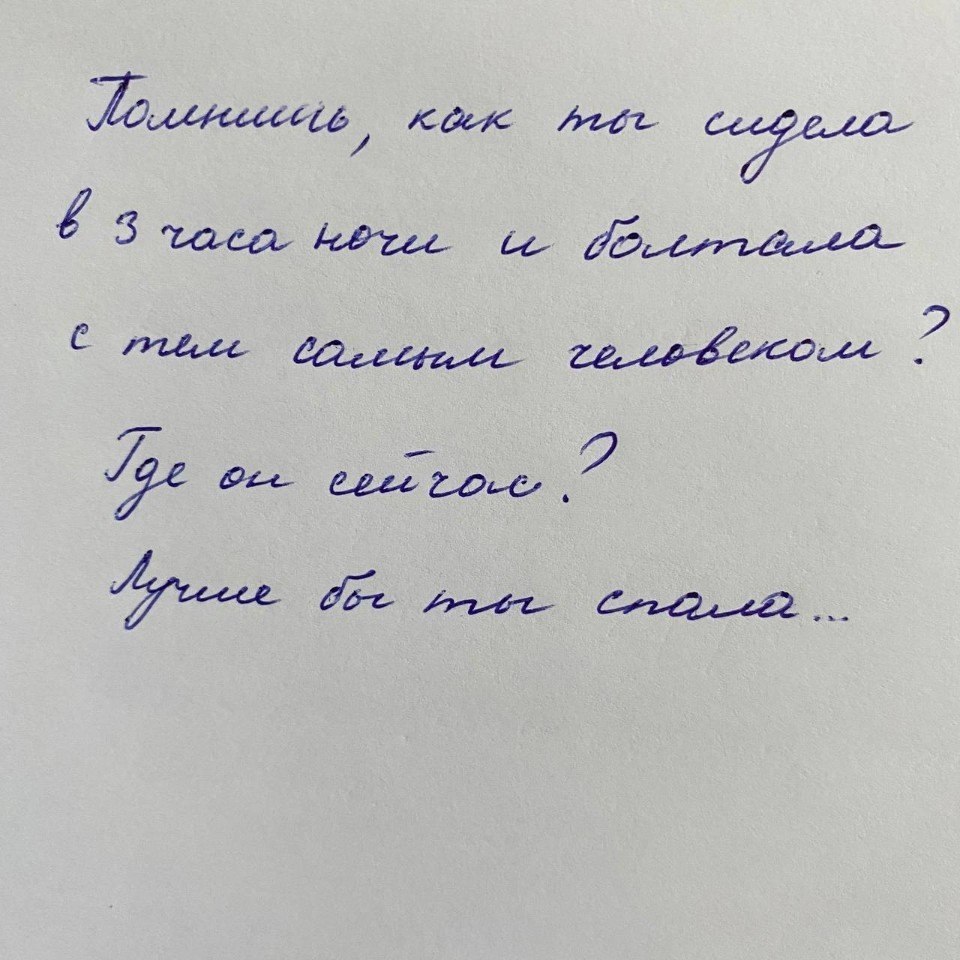 Помнишь, как ты сидела
в 3 часа ночи и болтала
с тем самым человеком?
Где он сейчас?
Лучше бы ты спала...